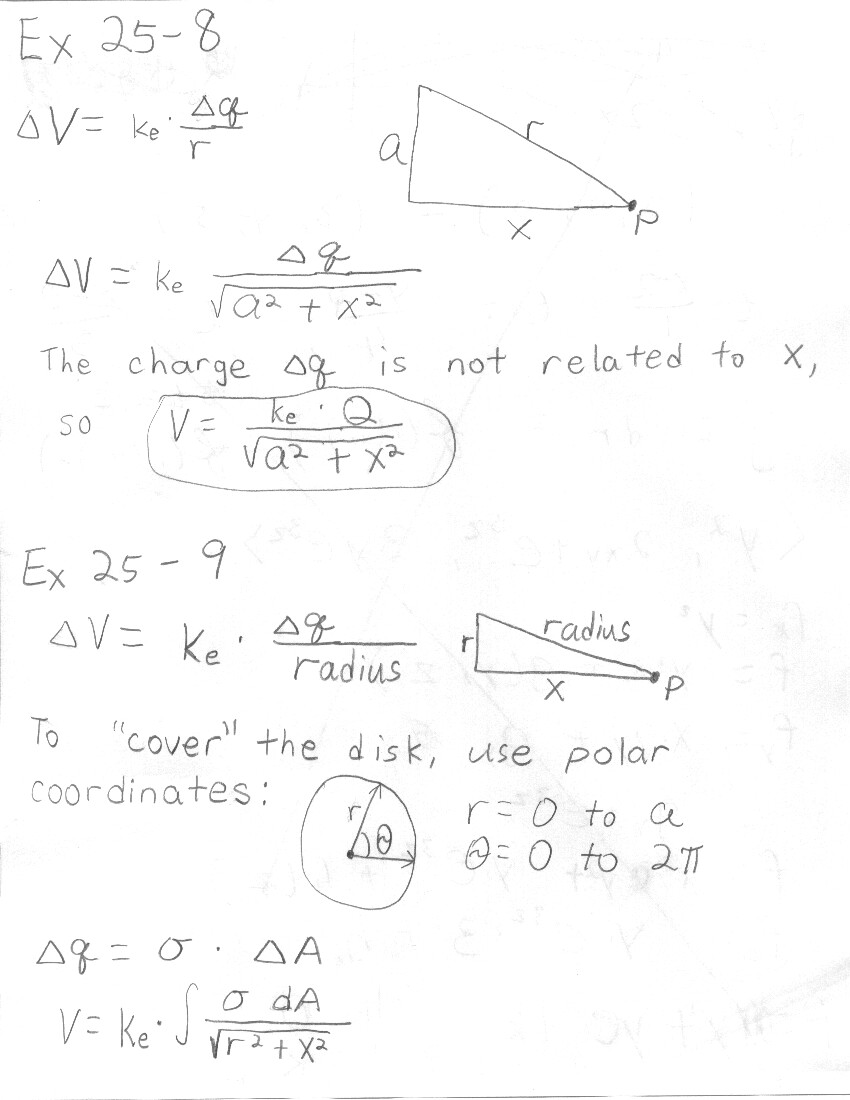 Ex 25-8
ΔV = ke · Δq/r
a
r
x
P
ΔV = ke Δq/√(a² + x²)
The charge Δq is not related to x,
so V = ke · Q/√(a² + x²)
Ex 25-9
ΔV = Ke · Δq/radius
r
radius
x
P
To "cover" the disk, use polar
coordinates:
r
θ
r = 0 to a
θ = 0 to 2π
Δq = σ · ΔA
V = ke · ∫ σ dA/√(r² + x²)